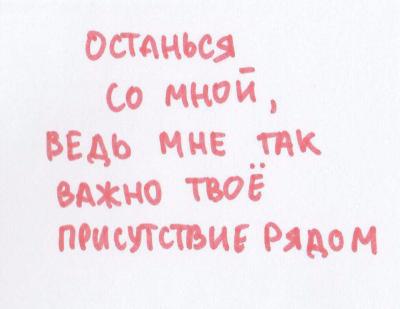 ОСТАНЬСЯ
СО МНОЙ,
ВЕДЬ МНЕ ТАК
ВАЖНО ТВОЁ
ПРИСУТСТВИЕ РЯДОМ